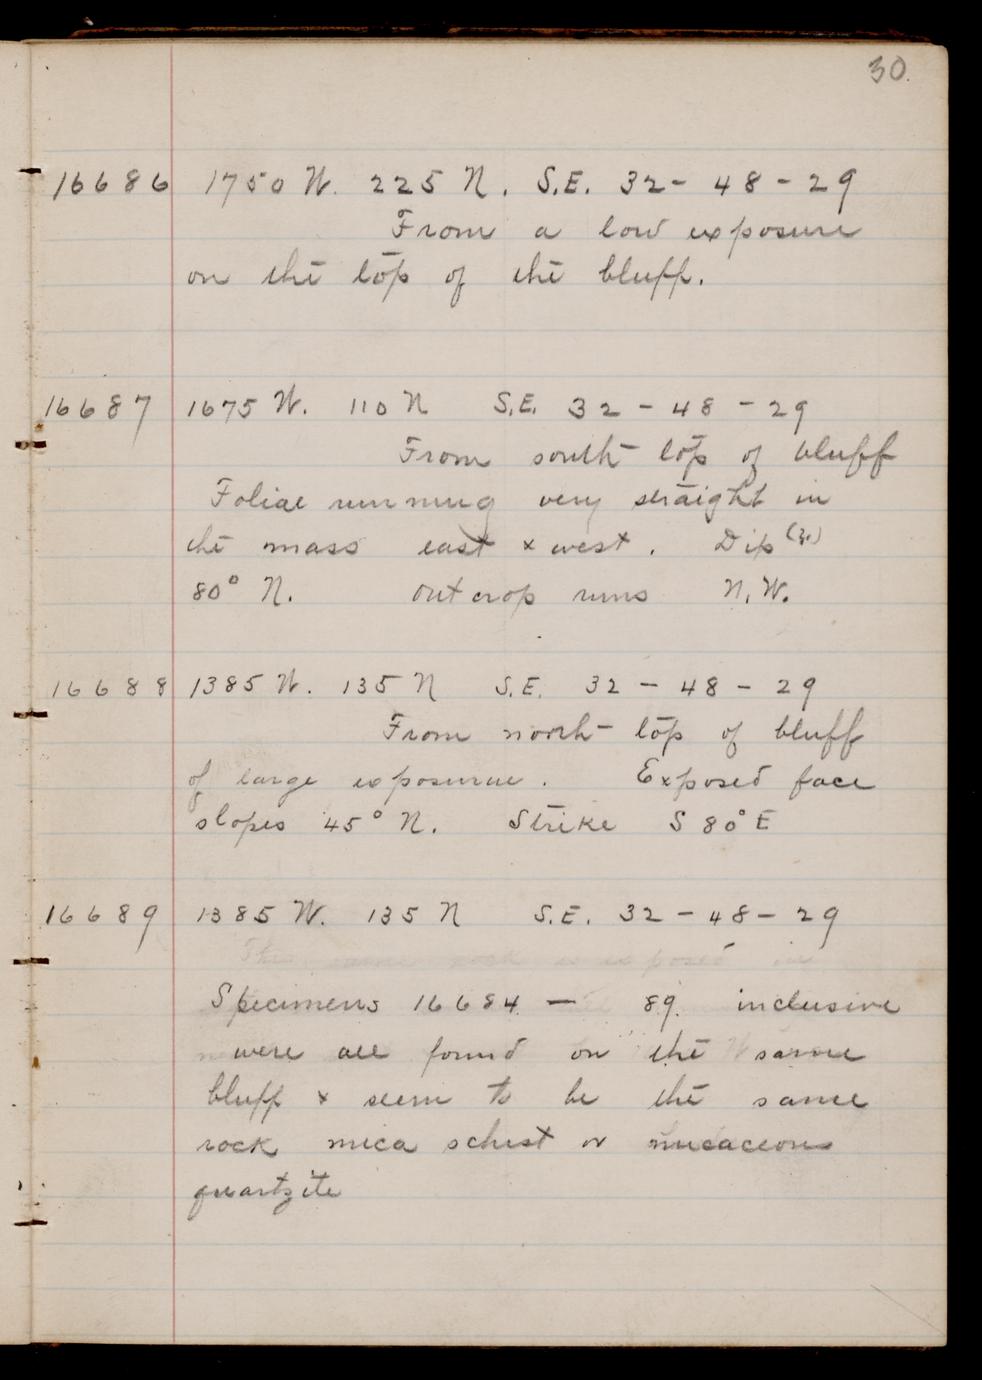 30.
16686 1750 W. 225 N. S.E. 32-48-29
From a low exposure
on the top of the bluff.
16687 1675 W. 110 N S.E. 32-48-29
From south top of bluff
Foliae running very straight in
the mass east & west. Dip (?)
80° N. outcrop runs N.W.
16688 1385 W. 135 N S.E. 32-48-29
From north top of bluff
of large exposurue. Exposed face
slopes 45° N. Strike S 80° E
16689 1385 W. 135 N S.E. 32-48-29
The same rock is exposed in
Specimens 16684 - 89. inclusive
were all found on the same
bluff & seem to be the same
rock mica schist or micaceous
quartzite